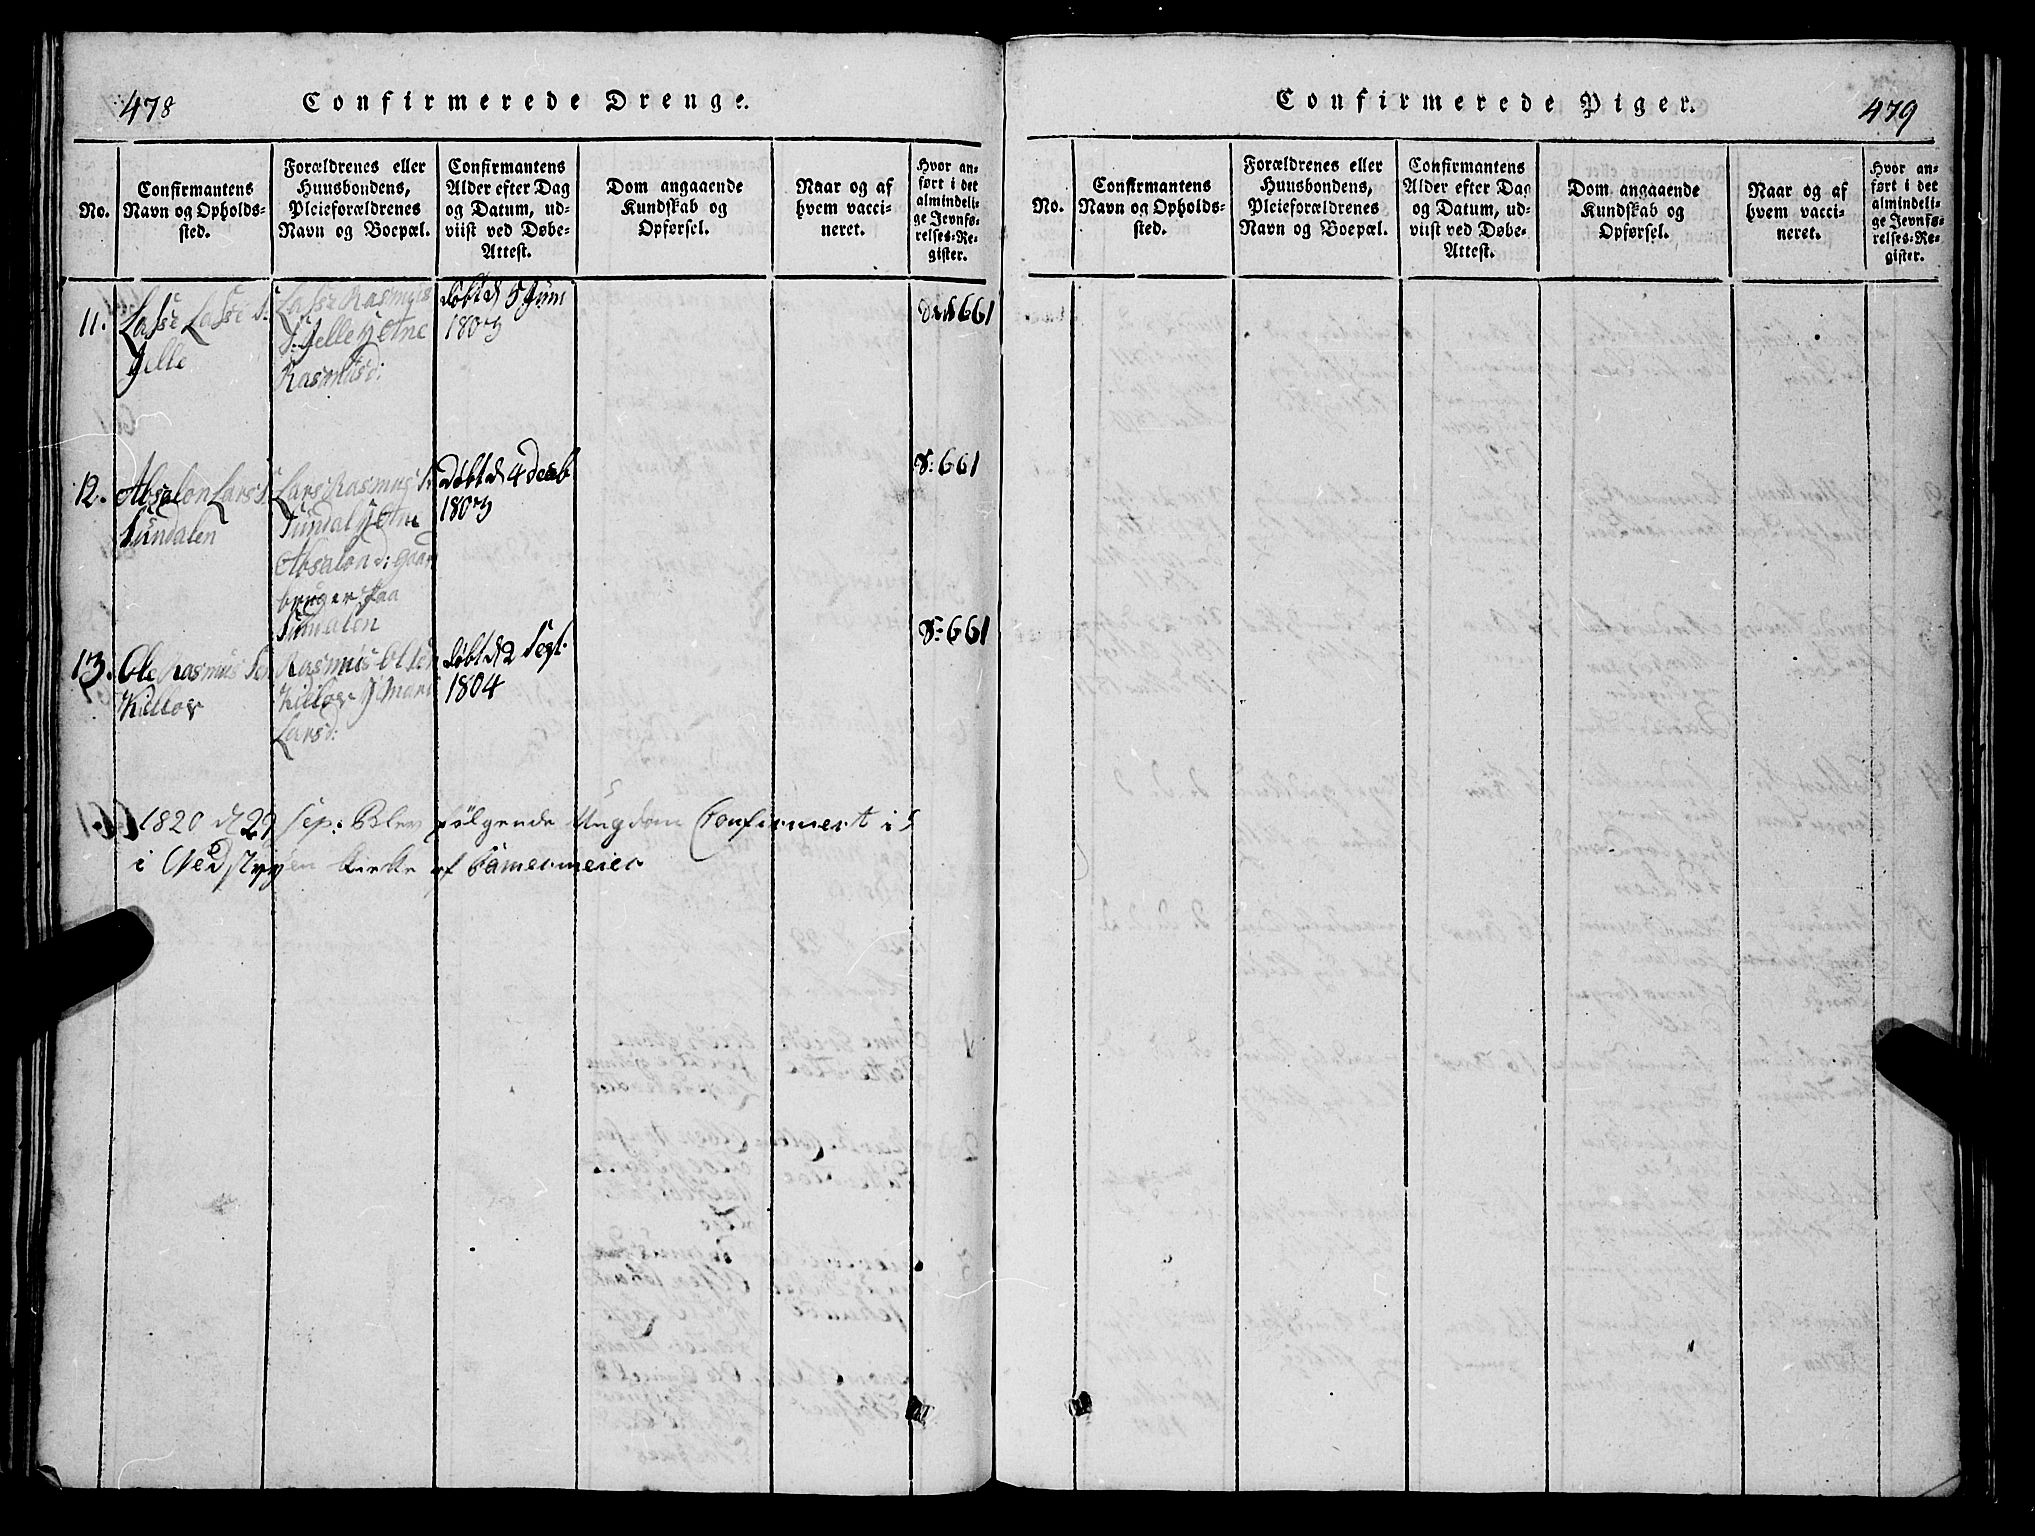 478
Confirmerede Drenge.
No.
Confirmantens
Navn og Opholds-
sted.
Forældrenes eller
Huusbondens,
Pleieforældrenes
Navn og Boepæl.
Confirmantens
Alder efter Dag
og Datum, ud-
viist ved Døbe-
Attest.
Dom angaaende
Kundskab og
Opførsel.
Naar og af
hvem vacci-
neret.
Hvor an-
ført i det
almindeli-
ge Jevnfø-
relses-Re-
gister.
11.
Lasse Lasse S:
Jelle
Lasse Rasmus
S: Jelle & Ane
Rasmusd:
døbt d 5 Juni
1803
661
12.
Absalon Lars S:
Sundalen
Lars Rasmus S:
Sundal & Ane
Absalond: gaar
bruger paa
Sundalen
døbt d 4 Decb
1803
S: 661
13.
Ole Rasmus Sen
Killos
Rasmus Olsen
Killos & Mari
Larsd:
døbt d 2 Sept.
1804
S: 661
1820 d 29 Sep: Blev følgende Ungdom Confirmert i
i Nedstryen kirke af
Confirmerede Piger.
479
No.
Confirmantens
Navn og Opholds-
sted.
Forældrenes eller
Huusbondens,
Pleieforældrenes
Navn og Boepæl.
Confirmantens
Alder efter Dag
og Datum, ud-
viist ved Døbe-
Attest.
Dom angaaende
Kundskab og
Opførsel.
Naar og af
hvem vacci-
neret.
Hvor an-
ført i det
almindeli-
ge Jevnfø-
relses-Re-
gister.